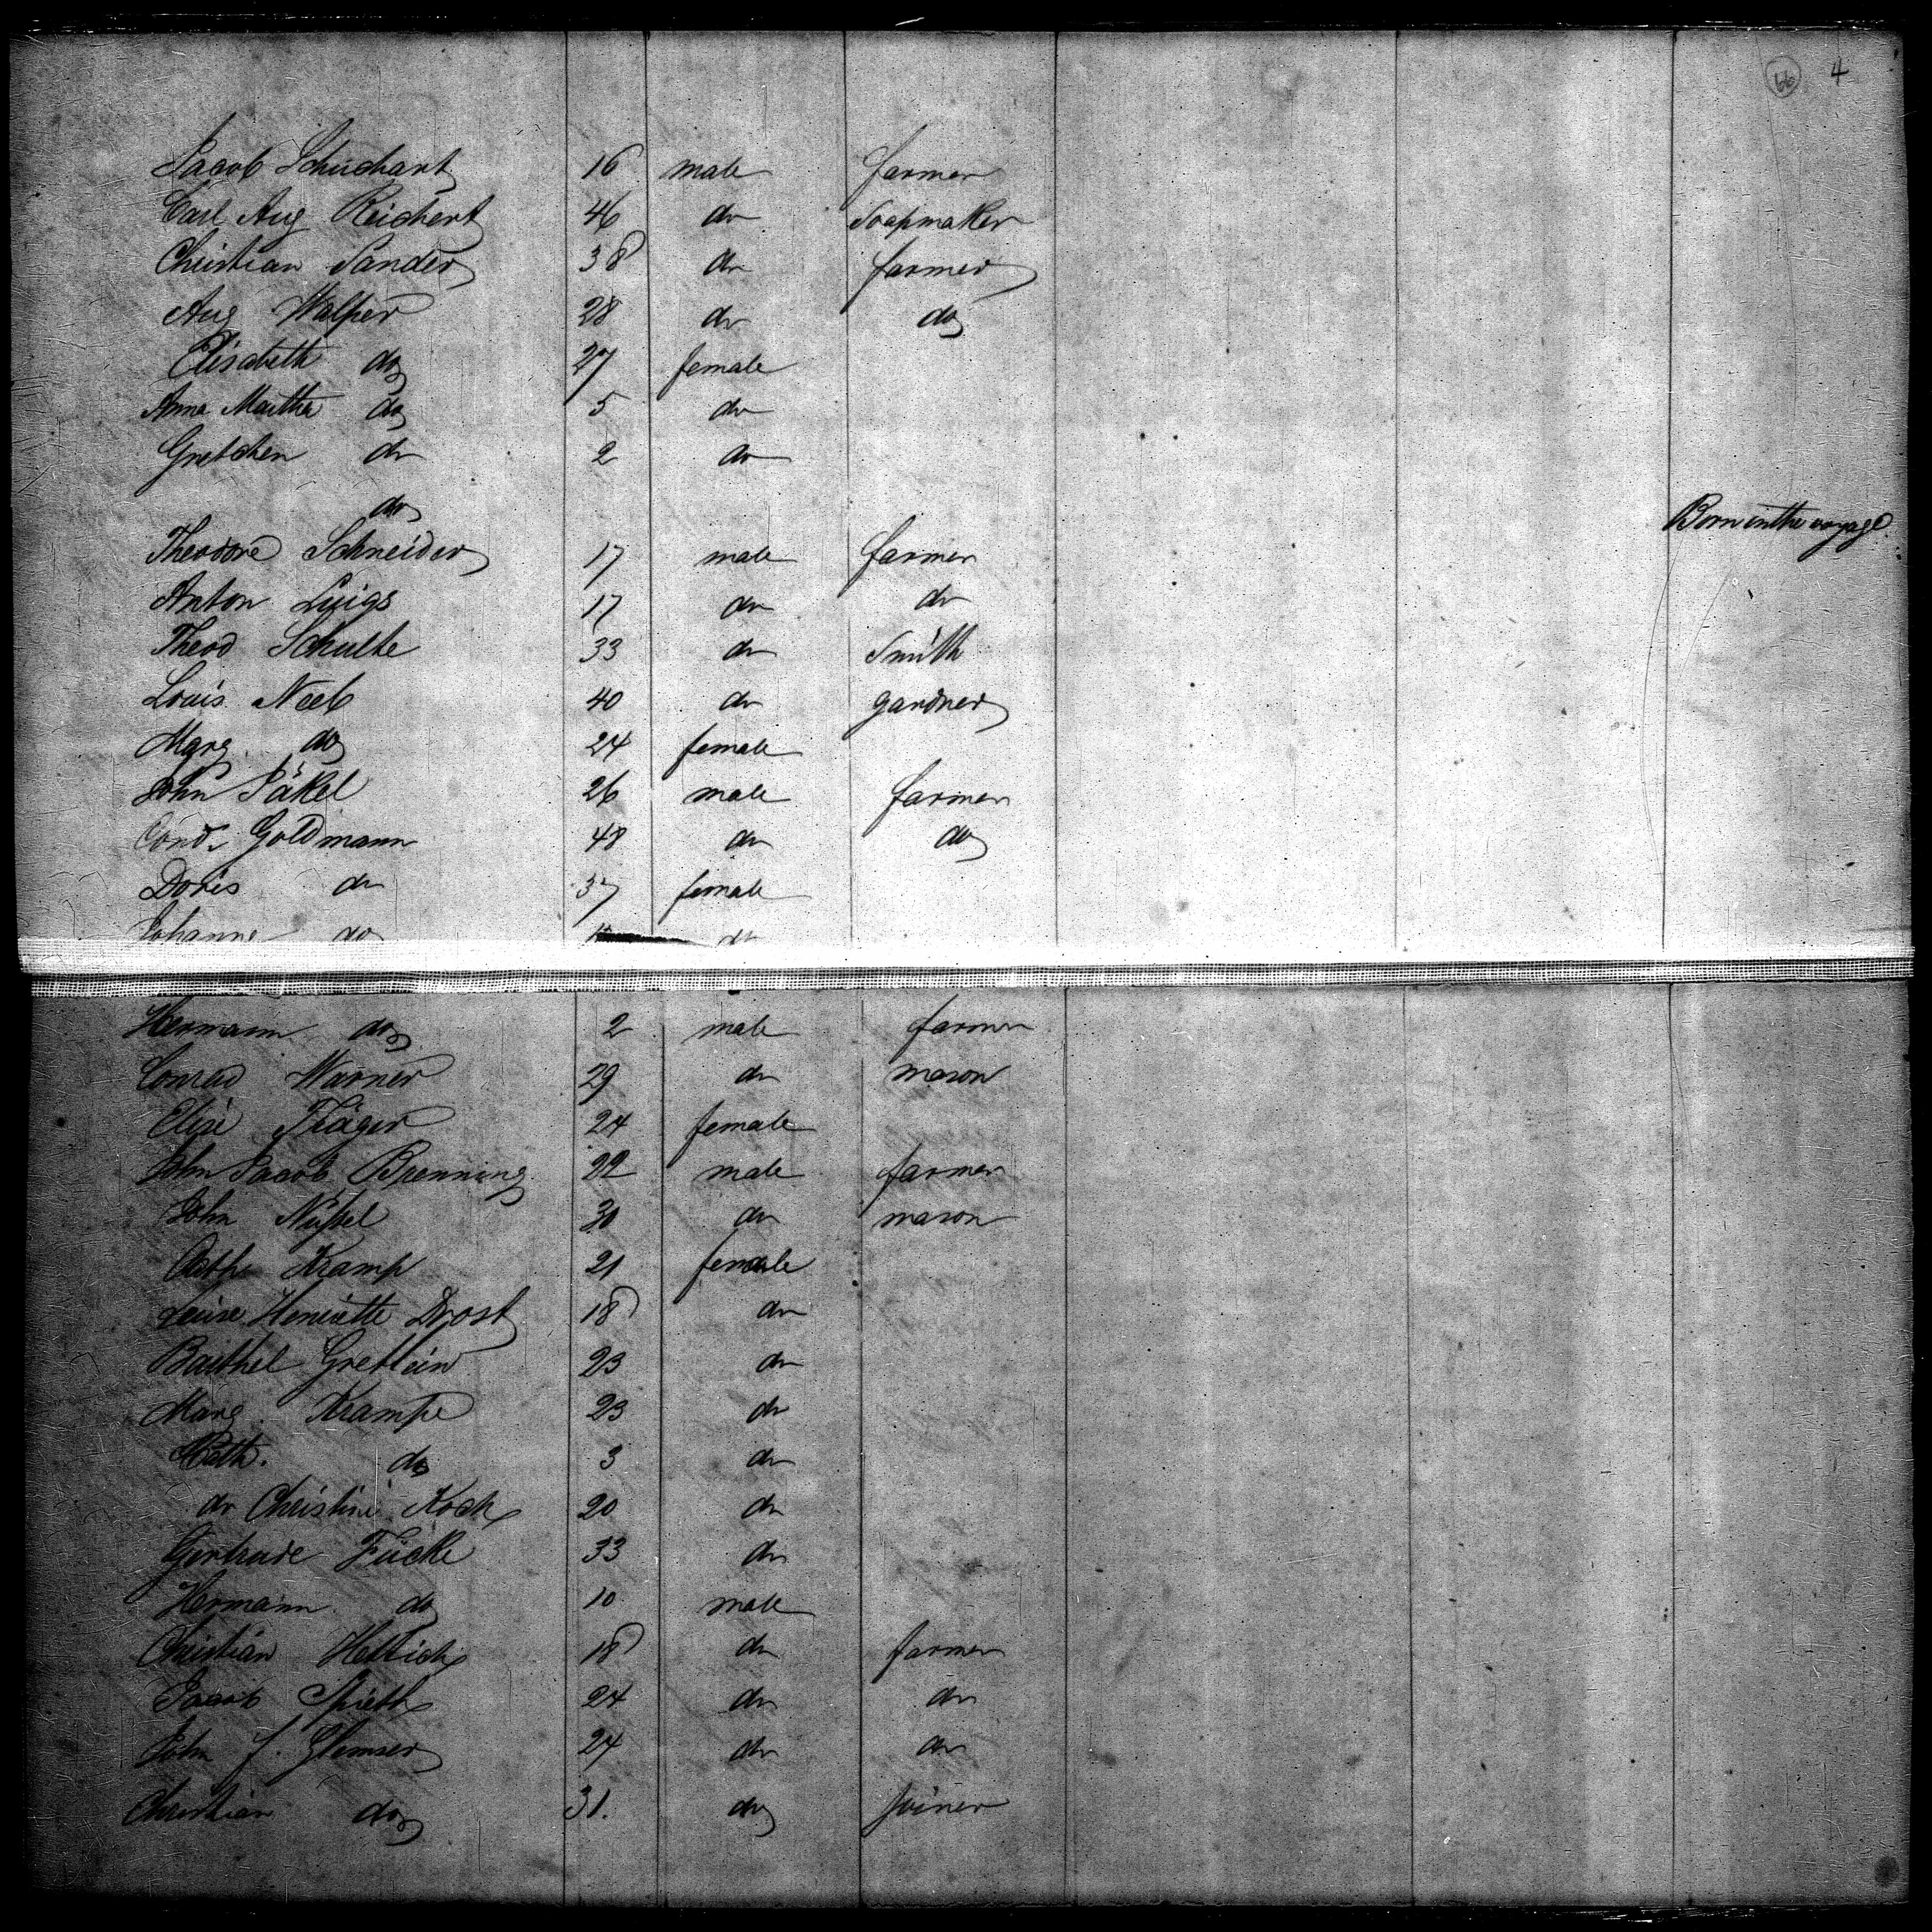 66 4
Jacob Schuchart 16 male farmer
Carl Aug Reichert 46 do Soapmaker
Christian Sander 38 do farmer
Aug Walper 28 do do
Elisabeth do 27 female
Anna Martha do 5 do
Gretchen do 2 do
do Born in the voyage.
Theodore Schneider 17 male farmer
Anton Luigs 17 do do
Theod Schulte 33 do Smith
Louis Neeb 40 do gardner
Marg. do 24 female
John Päkel 26 male farmer
Cond. Goldmann 48 do do
Doris do 37 female
Johanne do do
Hermann do 2 male farmer
Conrad Warner 29 do mason
Elise Träger 24 female
John Jacob Brenning 22 male farmer
John Nüssel 30 do mason
Cath Kramp 21 female
Louise Henriette Drost 18 do
Barthel Gretlein 23 do
Marg. Krampe 23 do
Cath. do 3 do
do Christine Koch 20 do
Gertrude Fücke 33 do
Hermann do 10 male
Christian Hettich 18 do farmer
Jacob Spieth 24 do do
John J. Glemser 24 do do
Christian do 31. do joiner